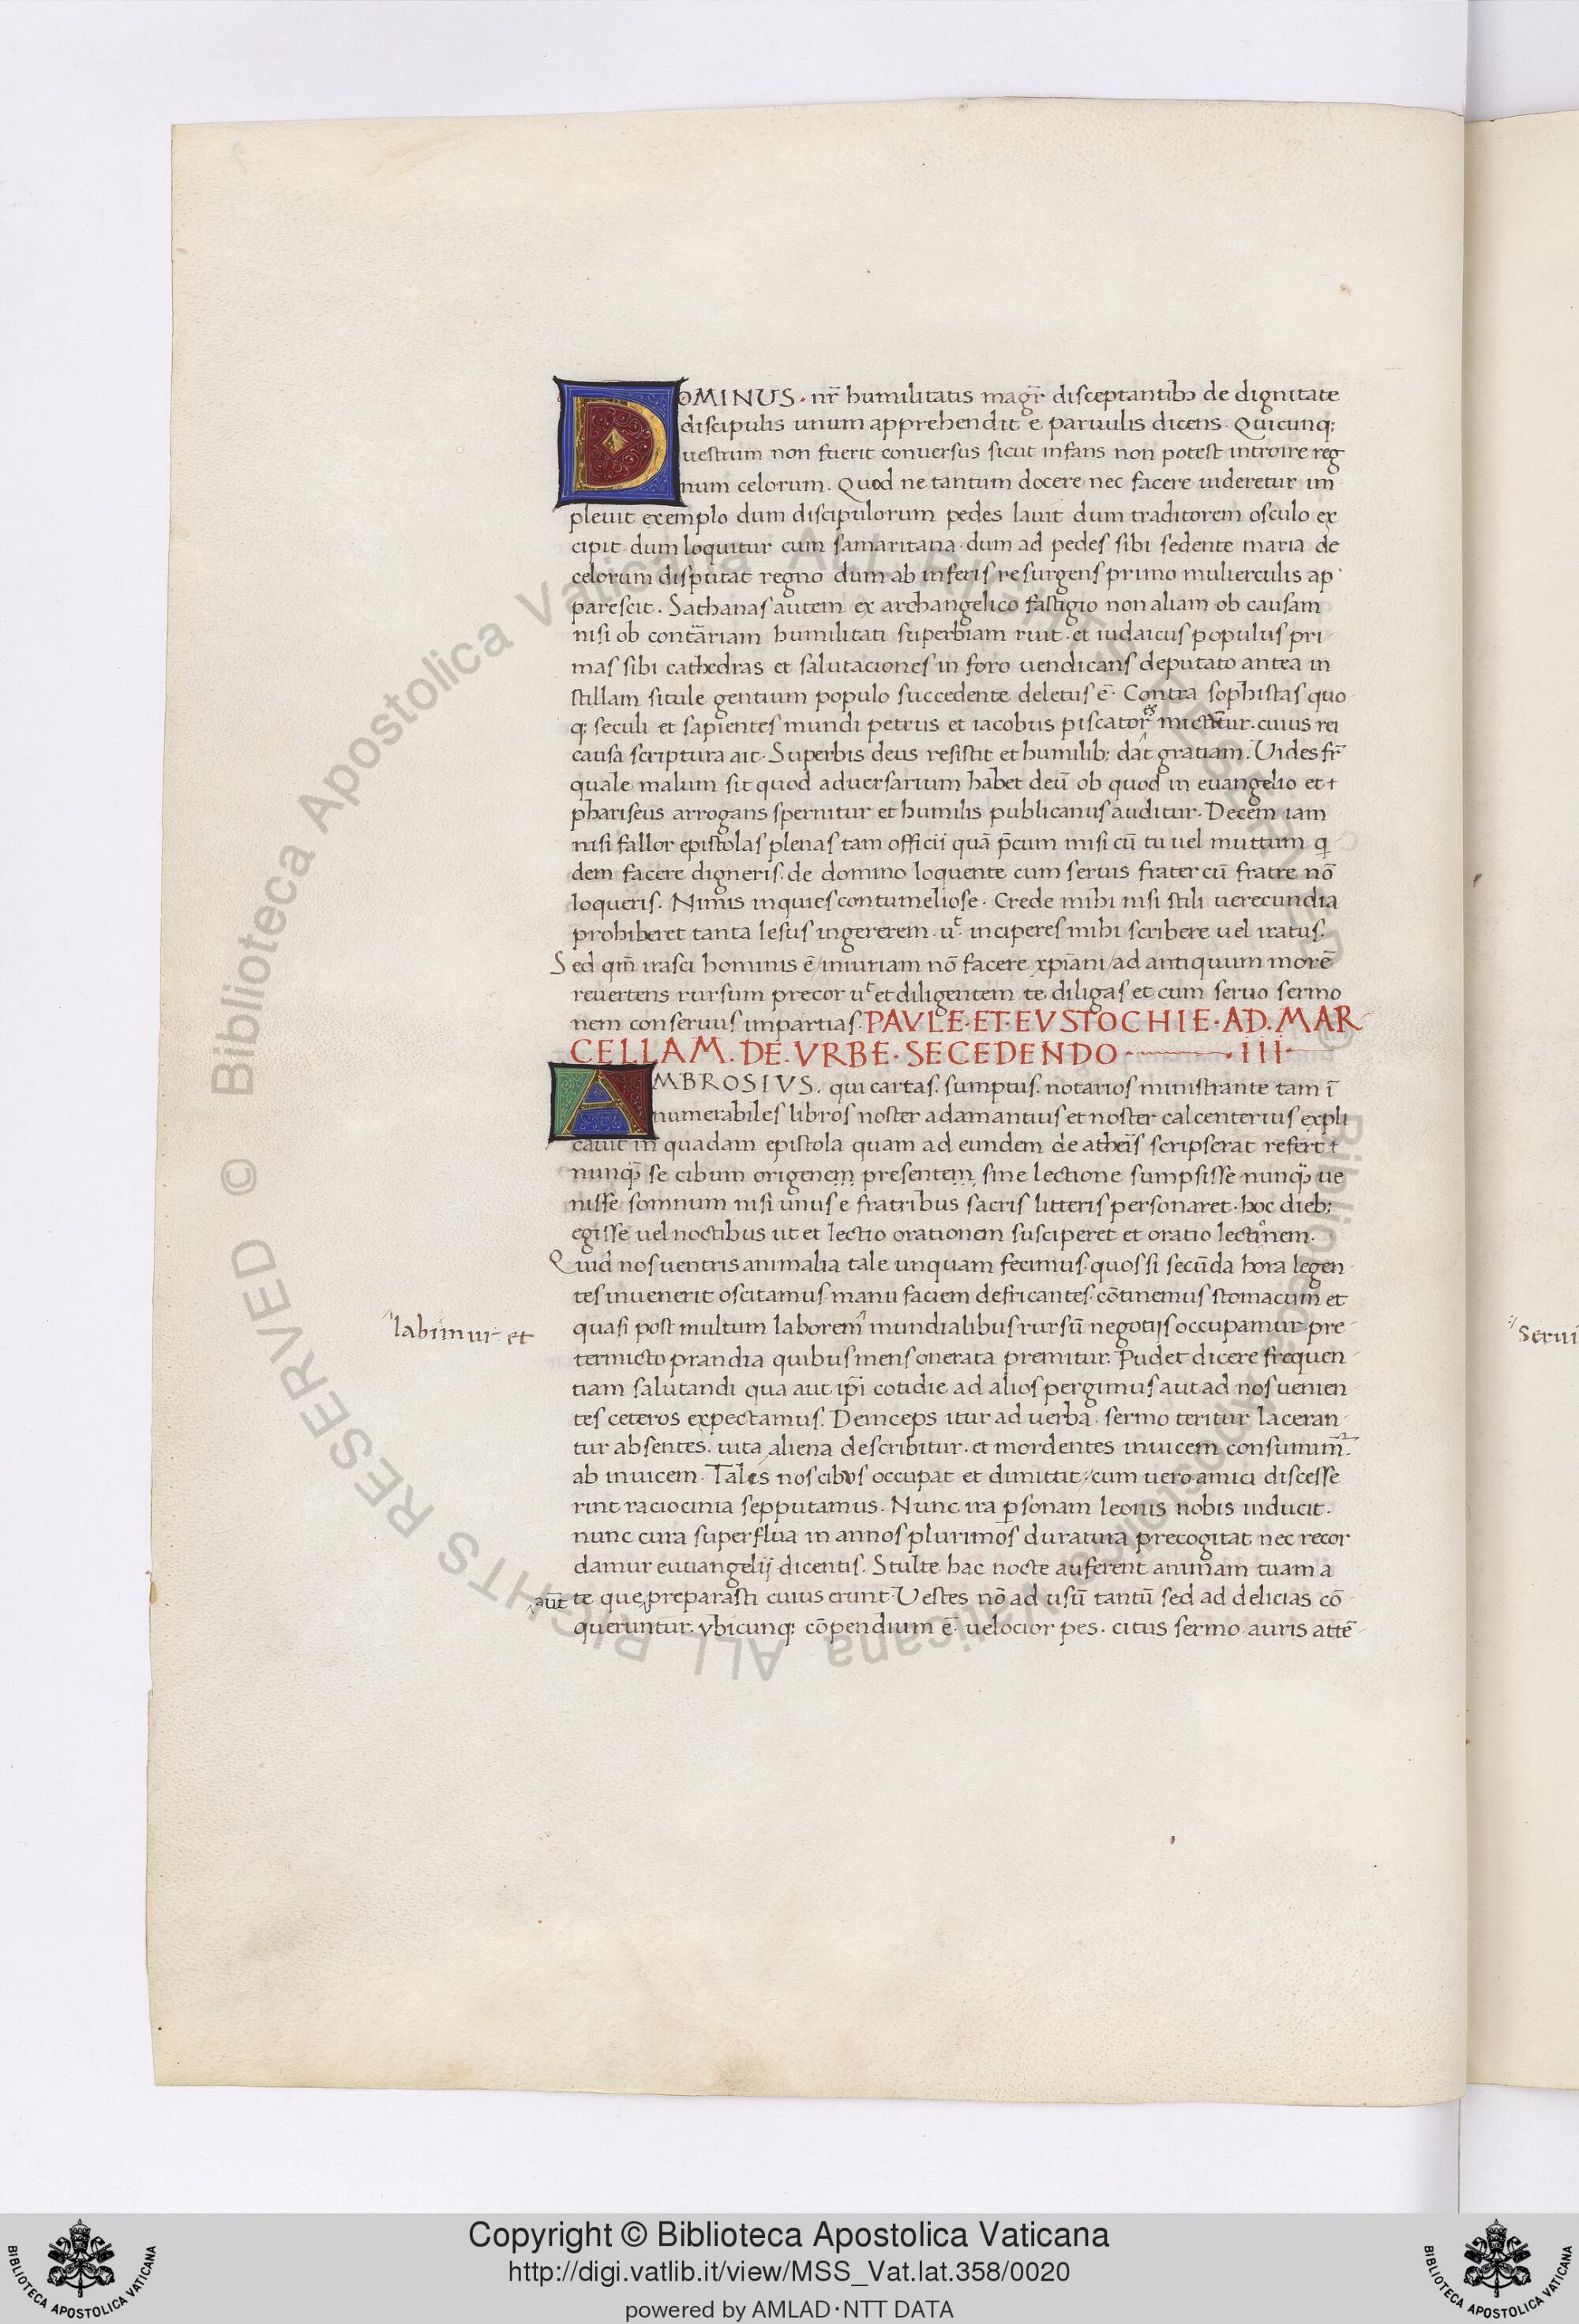 DOMINUS · nr̄ humilitatis magr̄ disceptantibꝫ de dignitate
discipulis unum apprehendit e paruulis dicens · Quicunq;
uestrum non fuerit conuersus sicut infans non potest introire reg
num celorum. Quod ne tantum docere nec facere uideretur im
pleuit exemplo dum discipulorum pedes lauit dum traditorem osculo ex
cipit dum loquitur cum samaritana · dum ad pedes sibi sedente maria de
celorum disputat regno dum ab inferis resurgens primo mulierculis ap
parescit. Sathanas autem ex archangelico fastigio non aliam ob causam
nisi ob contrariam humilitati superbiam ruit · et iudaicus populus pri
mas sibi cathedras et salutaciones in foro uendicans deputato antea in
stillam situle gentium populo succedente deletus ē · Contra sophistas quo
q; seculi et sapientes mundi petrus et iacobus piscatores mictūtur · cuius rei
causa scriptura ait · Superbis deus resistit et humilib; dat gratiam. Uides fr̄
quale malum sit quod aduersarium habet deū ob quod in euangelio et
phariseus arrogans spernitur et humilis publicanus auditur · Decem iam
nisi fallor epistolas plenas tam officii quā p̄cum misi cū tu uel muttum q
dem facere digneris · de domino loquente cum seruis frater cū fratre nō
loqueris · Nimis inquies contumeliose · Crede mihi nisi stili uerecundia
prohiberet tanta lesus ingererem · ut inciperes mihi scribere uel iratus.
Sed qm̄ irasci hominis ē / iniuriam nō facere xp̄iani / ad antiquum morē
reuertens rursum precor ut et diligentem te diligas et cum seruo sermo
nem conseruus impartias. PAVLE · ET · EVSTOCHIE · AD · MAR
CELLAM . DE . VRBE · SECEDENDO · III ·
AMBROSIVS . qui cartas . sumptus . notarios ministrante tam ī
numerabiles libros noster adamantius et noster calcenterius expli
cauit in quadam epistola quam ad eundem de atheis scripserat refert
nunq̄ se cibum origenem presentem sine lectione sumpsisse nunq̄ ue
nisse somnum nisi unus e fratribus sacris litteris personaret · hoc dieb;
egisse uel noctibus ut et lectio orationem susciperet et oratio lectionem ·
Quid nos uentris animalia tale unquam fecimus · quos si secūda hora legen
tes inuenerit oscitamus manu faciem defricantes cōtinemus stomacum et
labimur et
quasi post multum laborem mundialibus rursū negotijs occupamur pre
termicto prandia quibus mens onerata premitur. Pudet dicere frequen
tiam salutandi qua aut ip̄i cotidie ad alios pergimus aut ad nos uenien
tes ceteros expectamus. Deinceps itur ad uerba · sermo teritur laceran
tur absentes · uita aliena describitur · et mordentes inuicem consumim̄
ab inuicem · Tales nos cibus occupat et dimittit / cum uero amici discesse
rint raciocinia sepputamus · Nunc ira p̄sonam leonis nobis inducit ·
nunc cura superflua in annos plurimos duratura precogitat nec recor
damur euuangelij dicentis . Stulte hac nocte auferent animam tuam a
aūt te que preparasti cuius erunt · Uestes nō ad usū tantū sed ad delicias cō
queruntur · vbicunq; cōpendium ē · uelocior pes · citus sermo · auris attē
serui
© Biblioteca Apostolica Vaticana ALL RIGHTS RESERVED
© Biblioteca Apostolica Vaticana ALL RIGHTS RESERVED
Copyright © Biblioteca Apostolica Vaticana
http://digi.vatlib.it/view/MSS_Vat.lat.358/0020
powered by AMLAD·NTT DATA
BIBLIOTECA APOSTOLICA VATICANA
BIBLIOTECA APOSTOLICA VATICANA